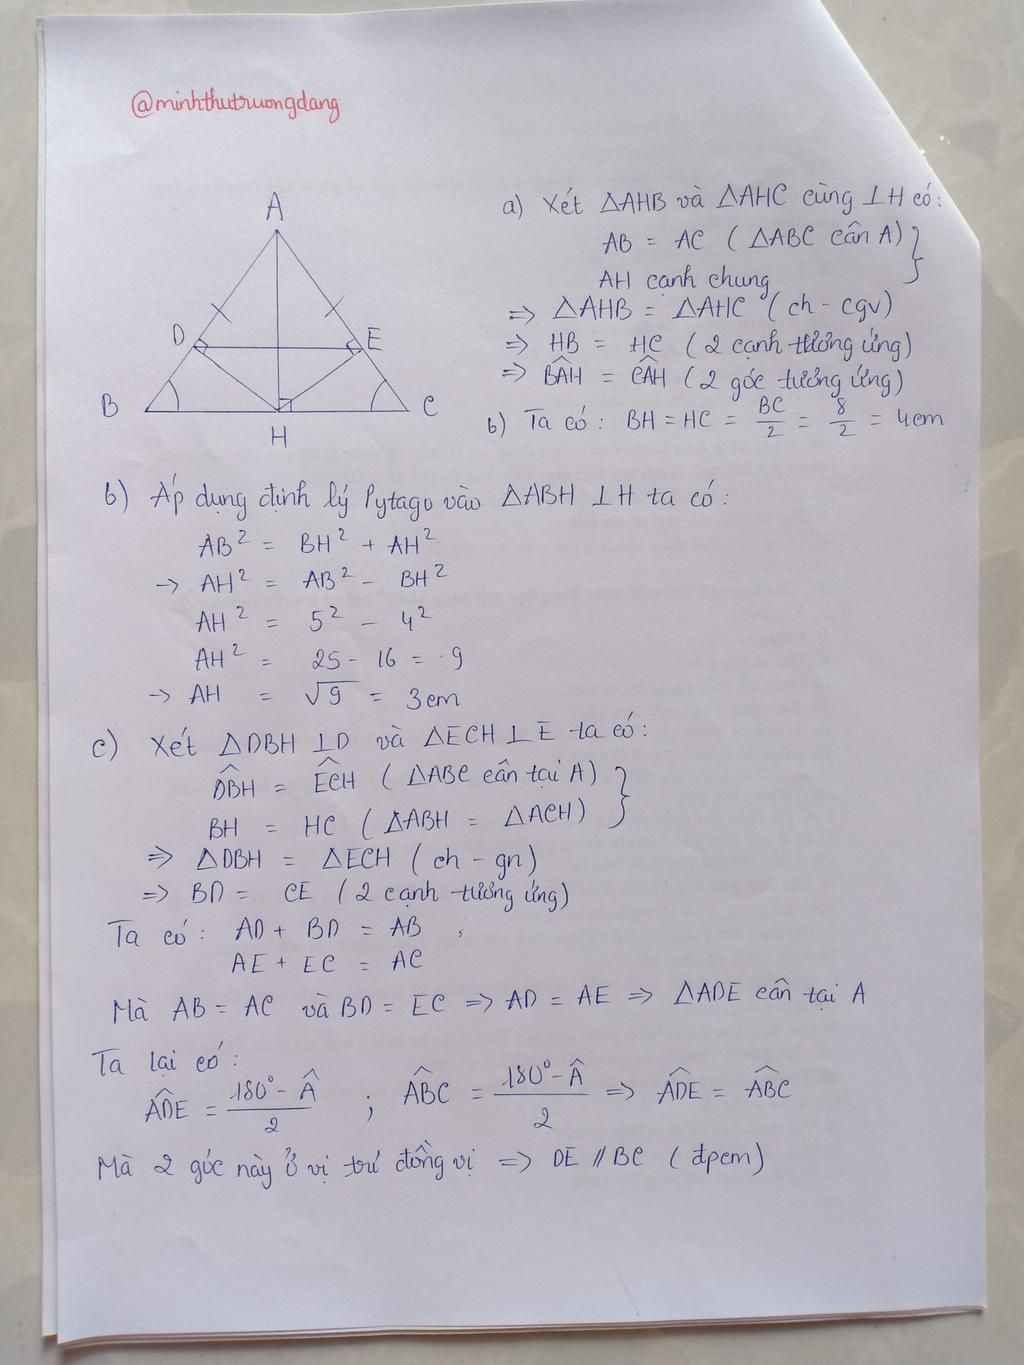 @minhthutruongdang
A
D
E
B
C
H
a) Xét △AHB và △AHC cùng ⊥H có:
AB = AC (△ABC cân A)
AH cạnh chung
=> △AHB = △AHC (ch - cgv)
=> HB = HC (2 cạnh tương ứng)
=> BÂH = CÂH (2 góc tương ứng)
b) Ta có: BH = HC = BC/2 = 8/2 = 4cm
b) Áp dụng định lý Pytago vào △ABH ⊥H ta có:
AB² = BH² + AH²
-> AH² = AB² - BH²
AH² = 5² - 4²
AH² = 25 - 16 = 9
-> AH = √9 = 3cm
c) Xét △DBH ⊥D và △ECH ⊥E ta có:
DB̂H = EĈH (△ABC cân tại A)
BH = HC (△ABH = △ACH)
=> △DBH = △ECH (ch - gn)
=> BD = CE (2 cạnh tương ứng)
Ta có: AD + BD = AB
AE + EC = AC
Mà AB = AC và BD = EC => AD = AE => △ADE cân tại A
Ta lại có:
AD̂E = (180° - Â)/2 ; AB̂C = (180° - Â)/2 => AD̂E = AB̂C
Mà 2 góc này ở vị trí đồng vị => DE // BC (đpcm)